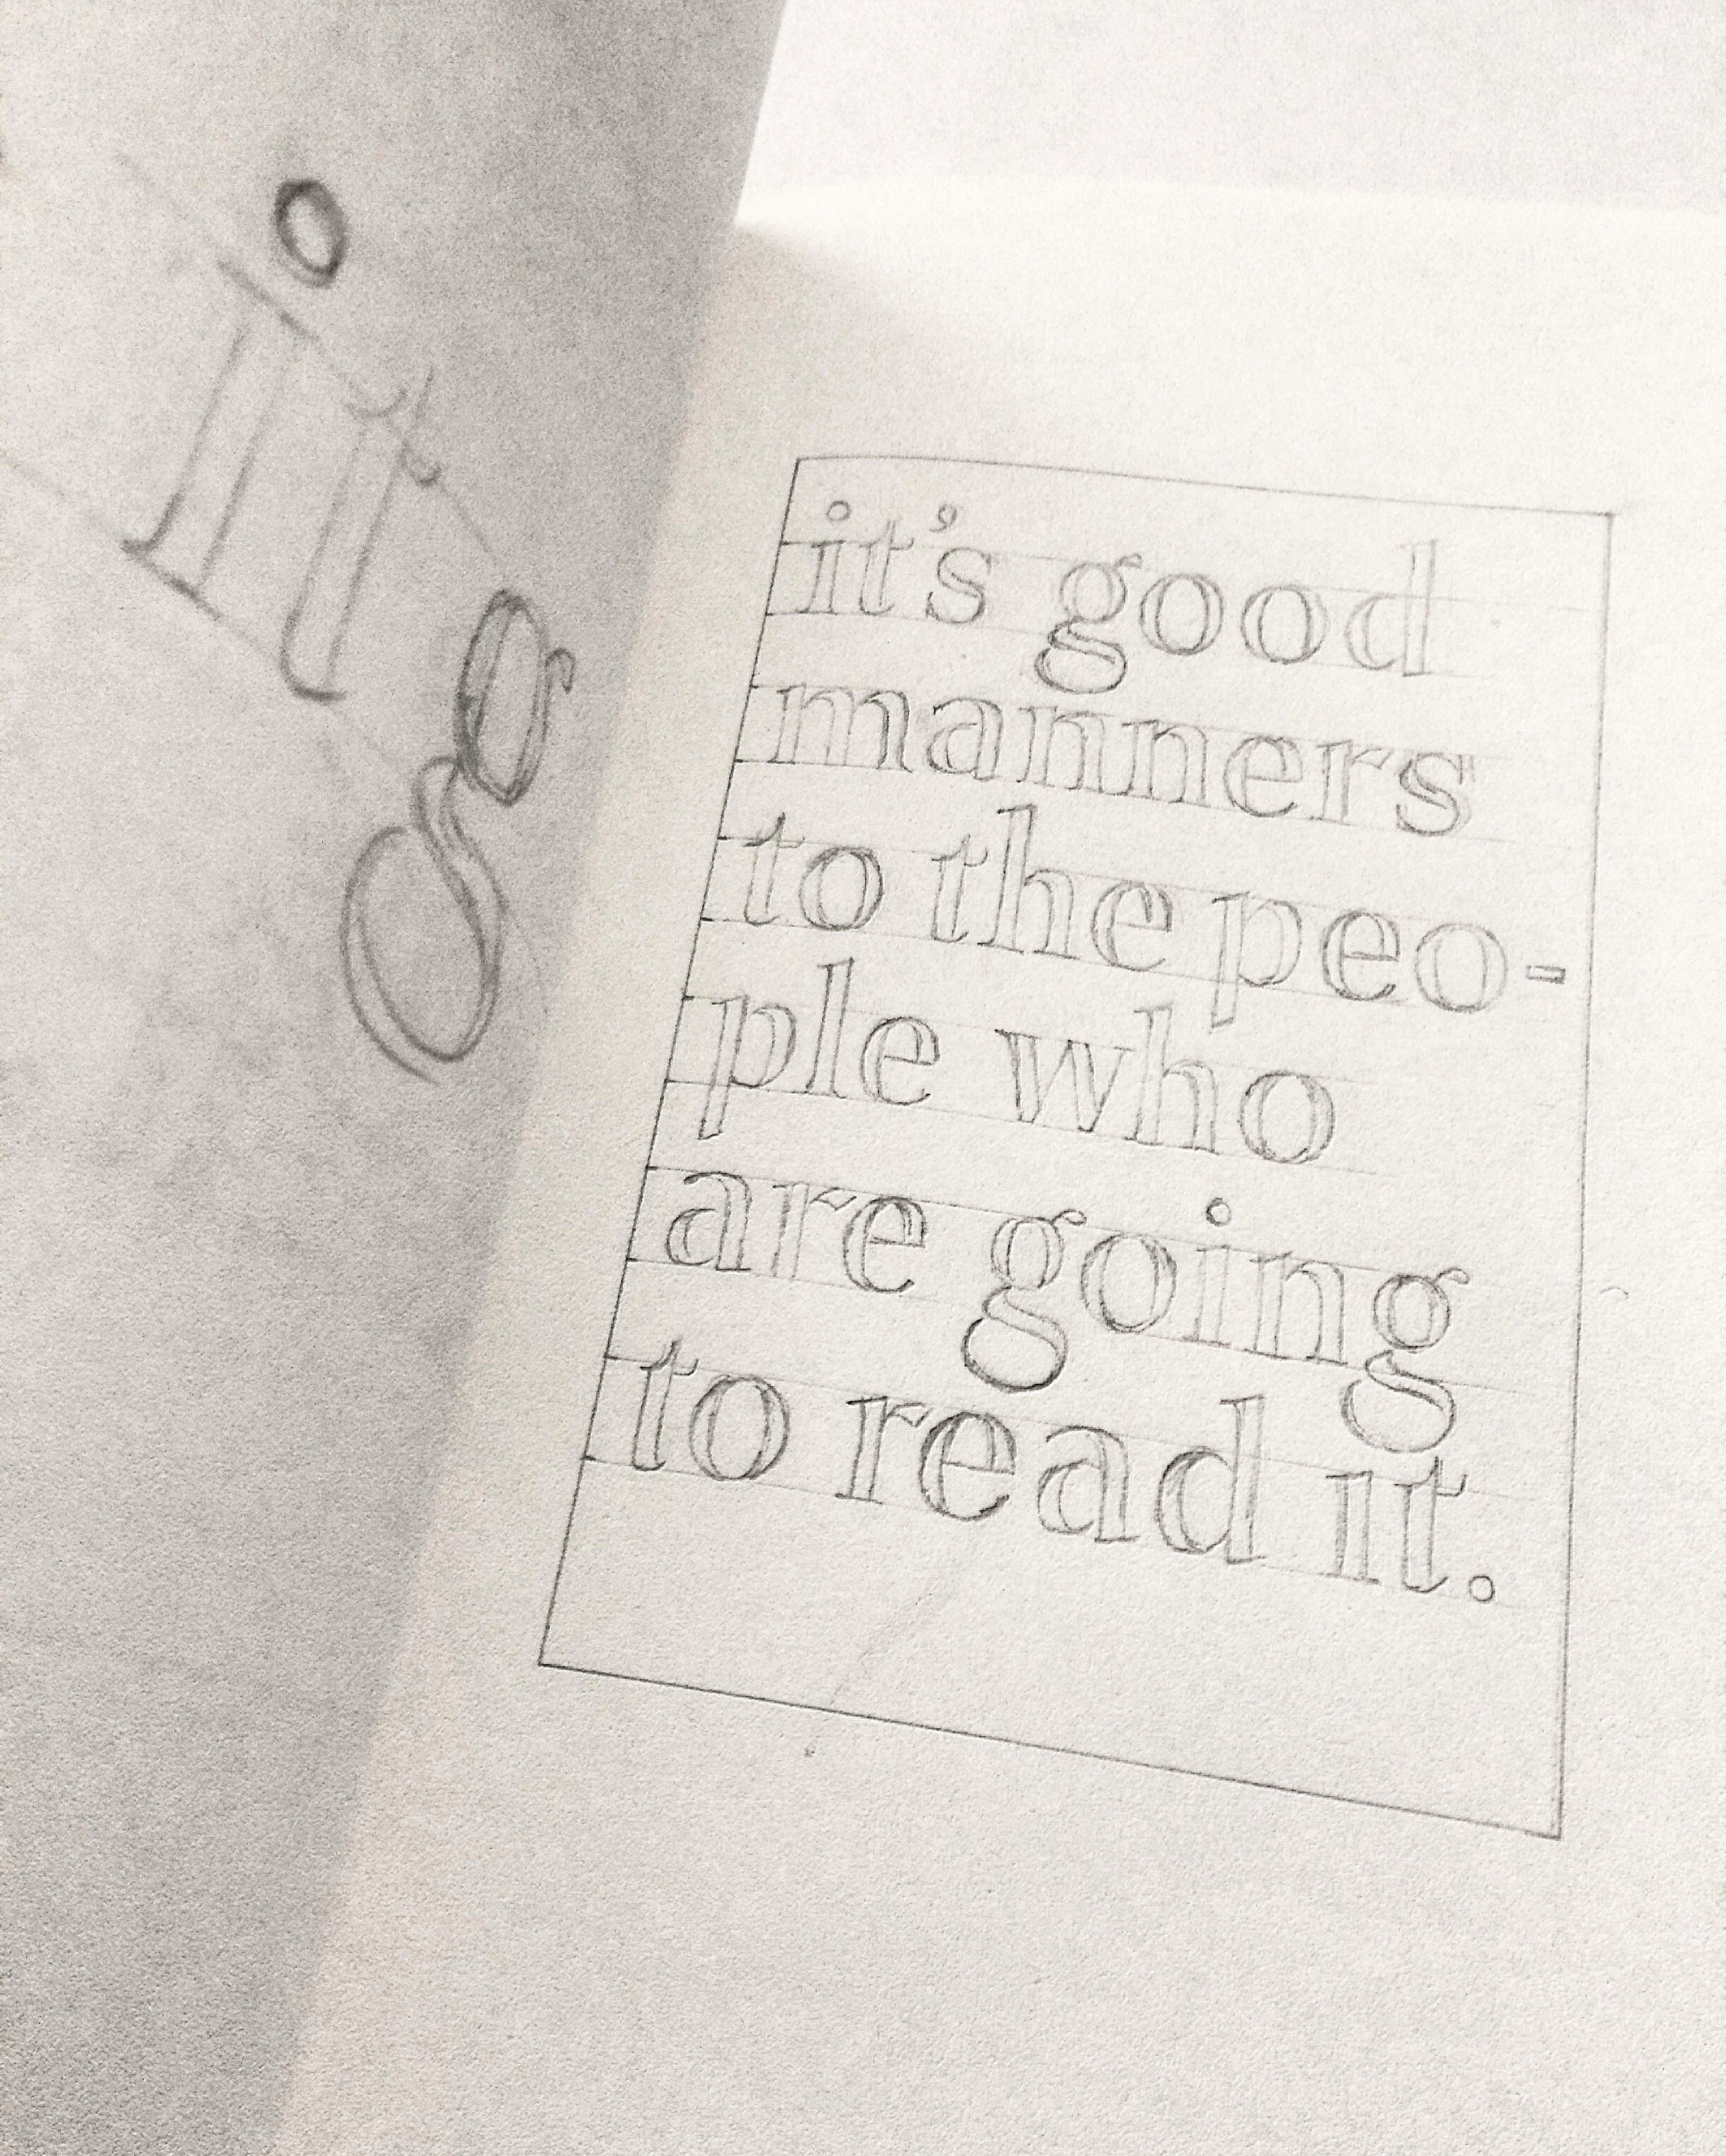 it
g
it's good
manners
to the peo-
ple who
are going
to read ıt.